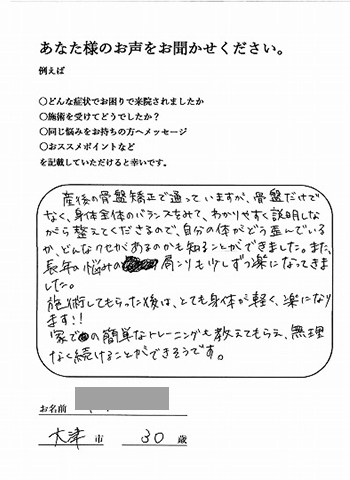 あなた様のお声をお聞かせください。
例えば
○どんな症状でお困りで来院されましたか
○施術を受けてどうでしたか?
○同じ悩みをお持ちの方へメッセージ
○おススメポイントなど
を記載していただけると幸いです。
産後の骨盤矯正で通っていますが、骨盤だけで
なく、身体全体のバランスをみて、わかりやすく説明しな
がら整えてくださるので、自分の体がどう歪んでいる
か、どんなクセがあるのかも知ることができました。また、
長年の悩みの肩こりも少しずつ楽になってきま
した。
施術してもらった後は、とても身体が軽く、楽になり
ます!!
家での簡単なトレーニングも教えてもらえ、無理
なく続けることができそうです。
お名前
大津 市 30 歳